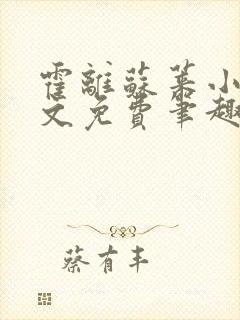 霍離蘇茶小
文免費筆趣
蔡有丰